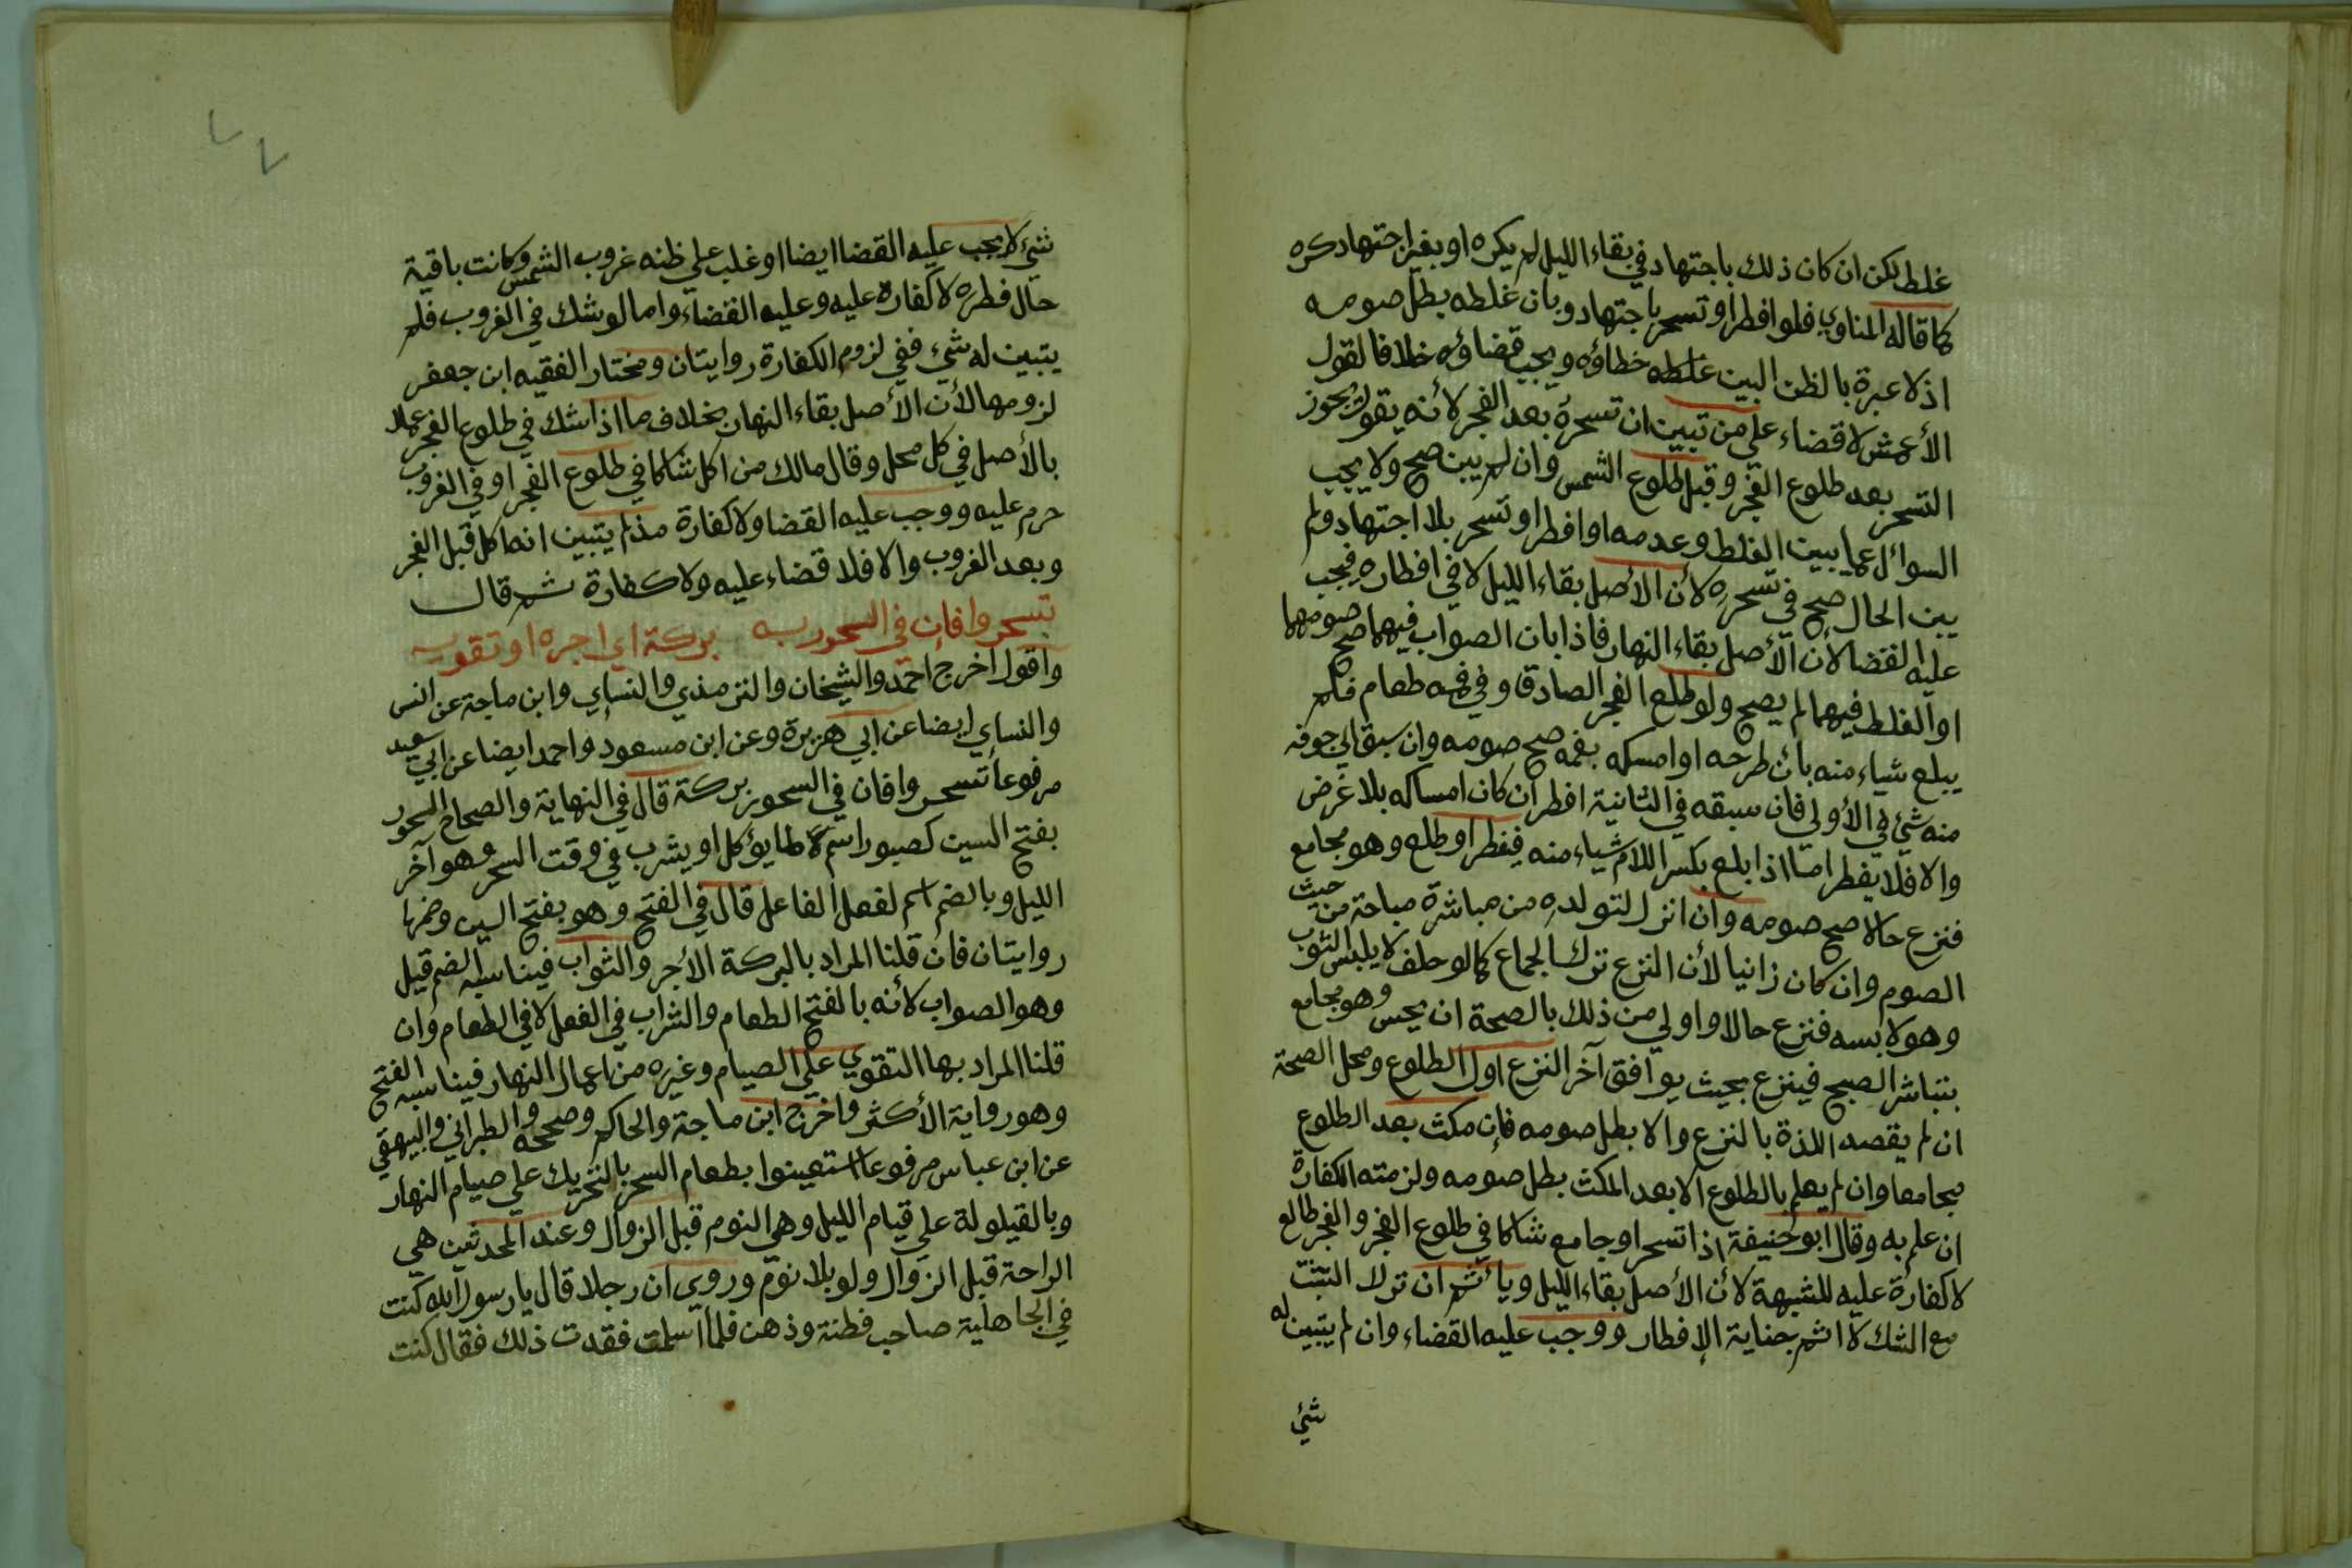 غلط لكن ان كان ذلك باجتهاد في بقاء الليل لم يكره او بغير اجتهاد كره
كما قاله المناوي فلو افطر او تسحر باجتهاد وبان غلطه بطل صومه
اذ لا عبرة بالظن البين غلطه خطاؤه ويجب قضاؤه خلافا لقول
الأعمش لا قضاء علي من تبين ان تسحره بعد الفجر لأنه يقول بجوز
التسحر بعد طلوع الفجر وقبل طلوع الشمس وان لم يبن صح ولا يجب
السوال عما يبين الغلط وعدمه او افطر او تسحر بلا اجتهاد ولم
يبن الحال صح في تسحره لأن الأصل بقاء الليل لا في افطاره فيجب
عليه القضا لأن الأصل بقاء النهار فاذا بان الصواب فيهما صح صومهما
او الغلط فيهما لم يصح ولو طلع الفجر الصادق وفي فمه طعام فلم
يبلع شياء منه بان طرحه او امسكه بفمه صح صومه وان سبق الي جوفه
منه شئ في الأولي فان سبقه في الثانية افطر ان كان امساكه بلا غرض
والا فلا يفطر اما اذا بلع بكسر اللام شياء منه فيفطر او طلع وهو مجامع
فنزع حالا صح صومه وان انزل لتولده من مباشرة مباحة من حيث
الصوم وان كان زانيا لأن النزع ترك الجماع كما لو حلف لا يلبس الثوب
وهو لابسه فنزع حالا واولي من ذلك بالصحة ان يحس وهو مجامع
بتباشر الصبح فينزع بحيث يوافق آخر النزع اول الطلوع ومحل الصحة
ان لم يقصد اللذة بالنزع والا بطل صومه فإن مكث بعد الطلوع
مجامعا وان لم يعلم بالطلوع الا بعد المكث بطل صومه ولزمته الكفارة
ان علم به وقال ابو حنيفة اذا تسحر او جامع شاكا في طلوع الفجر والفجر طالع
لا كفارة عليه للشبهة لأن الأصل بقاء الليل ويأثم ان ترك التثبت
مع الشك لا اثم جناية الإفطار ووجب عليه القضاء وان لم يتبين له
شئ
شئ لا يجب عليه القضا ايضا او غلب علي ظنه غروب الشمس وكانت باقية
حال فطره لا كفارة عليه وعليه القضاء واما لو شك في الغروب فلم
يتبين له شئ ففي لزوم الكفارة روايتان ومختار الفقيه ابن جعفر
لزومها لأن الأصل بقاء النهار بخلاف ما اذا شك في طلوع الفجر عملا
بالأصل في كل محل وقال مالك من اكل شاكا في طلوع الفجر او في الغروب
حرم عليه ووجب عليه القضا ولا كفارة مذ لم يتبين انه اكل قبل الفجر
وبعد الغروب والا فلا قضاء عليه ولا كفارة ثم قال
تسحروا فإن في السحور به بركة اي اجره او تقويه
واقول اخرج احمد والشيخان والترمذي والنساي وابن ماجة عن انس
والنساي ايضا عن ابي هريرة وعن ابن مسعود واحمد ايضا عن ابي سعيد
مرفوعا تسحروا فان في السحور بركة قال في النهاية والصحاح السحور
بفتح السين كصبور اسم لما يؤكل او يشرب في وقت السحر وهو آخر
الليل وبالضم اسم لفعل الفاعل قال في الفتح وهو بفتح السين وضمها
روايتان فان قلنا المراد بالبركة الأجر والثواب فيناسبه الضم قيل
وهو الصواب لأنه بالفتح الطعام والشراب في الفعل لا في الطعام وان
قلنا المراد بها التقوي علي الصيام وغيره من اعمال النهار فيناسبه الفتح
وهو رواية الأكثر واخرج ابن ماجة والحاكم وصححه والطبراني والبيهقي
عن ابن عباس مرفوعا استعينوا بطعام السحر بالتحريك علي صيام النهار
وبالقيلولة علي قيام الليل وهي النوم قبل الزوال وعند المحدثين هي
الراحة قبل الزوال ولو بلا نوم وروي ان رجلا قال يا رسول الله كنت
في الجاهلية صاحب فطنة وذهن فلما اسلمت فقدت ذلك فقال كنت